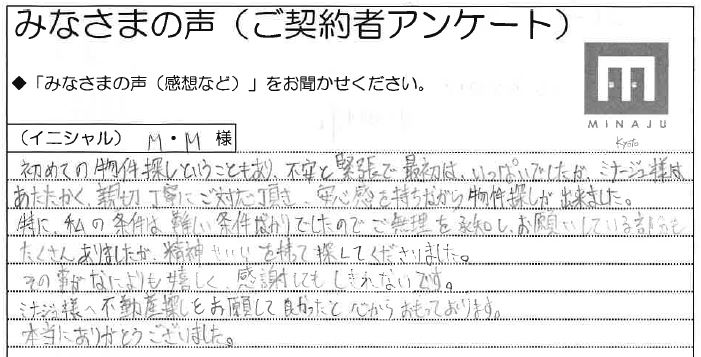 みなさまの声（ご契約者アンケート）
◆「みなさまの声（感想など）」をお聞かせください。
MINAJU
Kyoto
（イニシャル） M・M 様
初めての物件探しということもあり、不安と緊張で最初は、いっぱいでしたが、ミナージュ様は
あたたかく、親切丁寧にご対応頂き、安心感を持ちながら物件探しが出来ました。
特に、私の条件は難しい条件ばかりでしたのでご無理を承知し、お願いしている部分も
たくさんありましたが、精神せいいを持って探してくださいました。
その事がなによりも嬉しく、感謝してもしきれないです。
ミナージュ様へ不動産探しをお願して良かったと心からおもっております。
本当にありがとうございました。